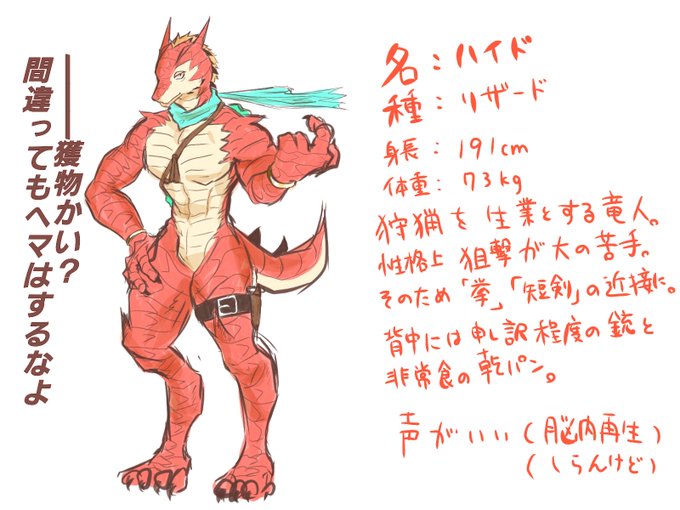 ――獲物かい？
間違ってもヘマはするなよ
名：ハイド
種：リザード
身長：191cm
体重：73kg
狩猟を生業とする竜人。
性格上狙撃が大の苦手。
そのため「拳」「短剣」の近接に。
背中には申し訳程度の銃と
非常食の乾パン。
声がいい（脳内再生）
（しらんけど）